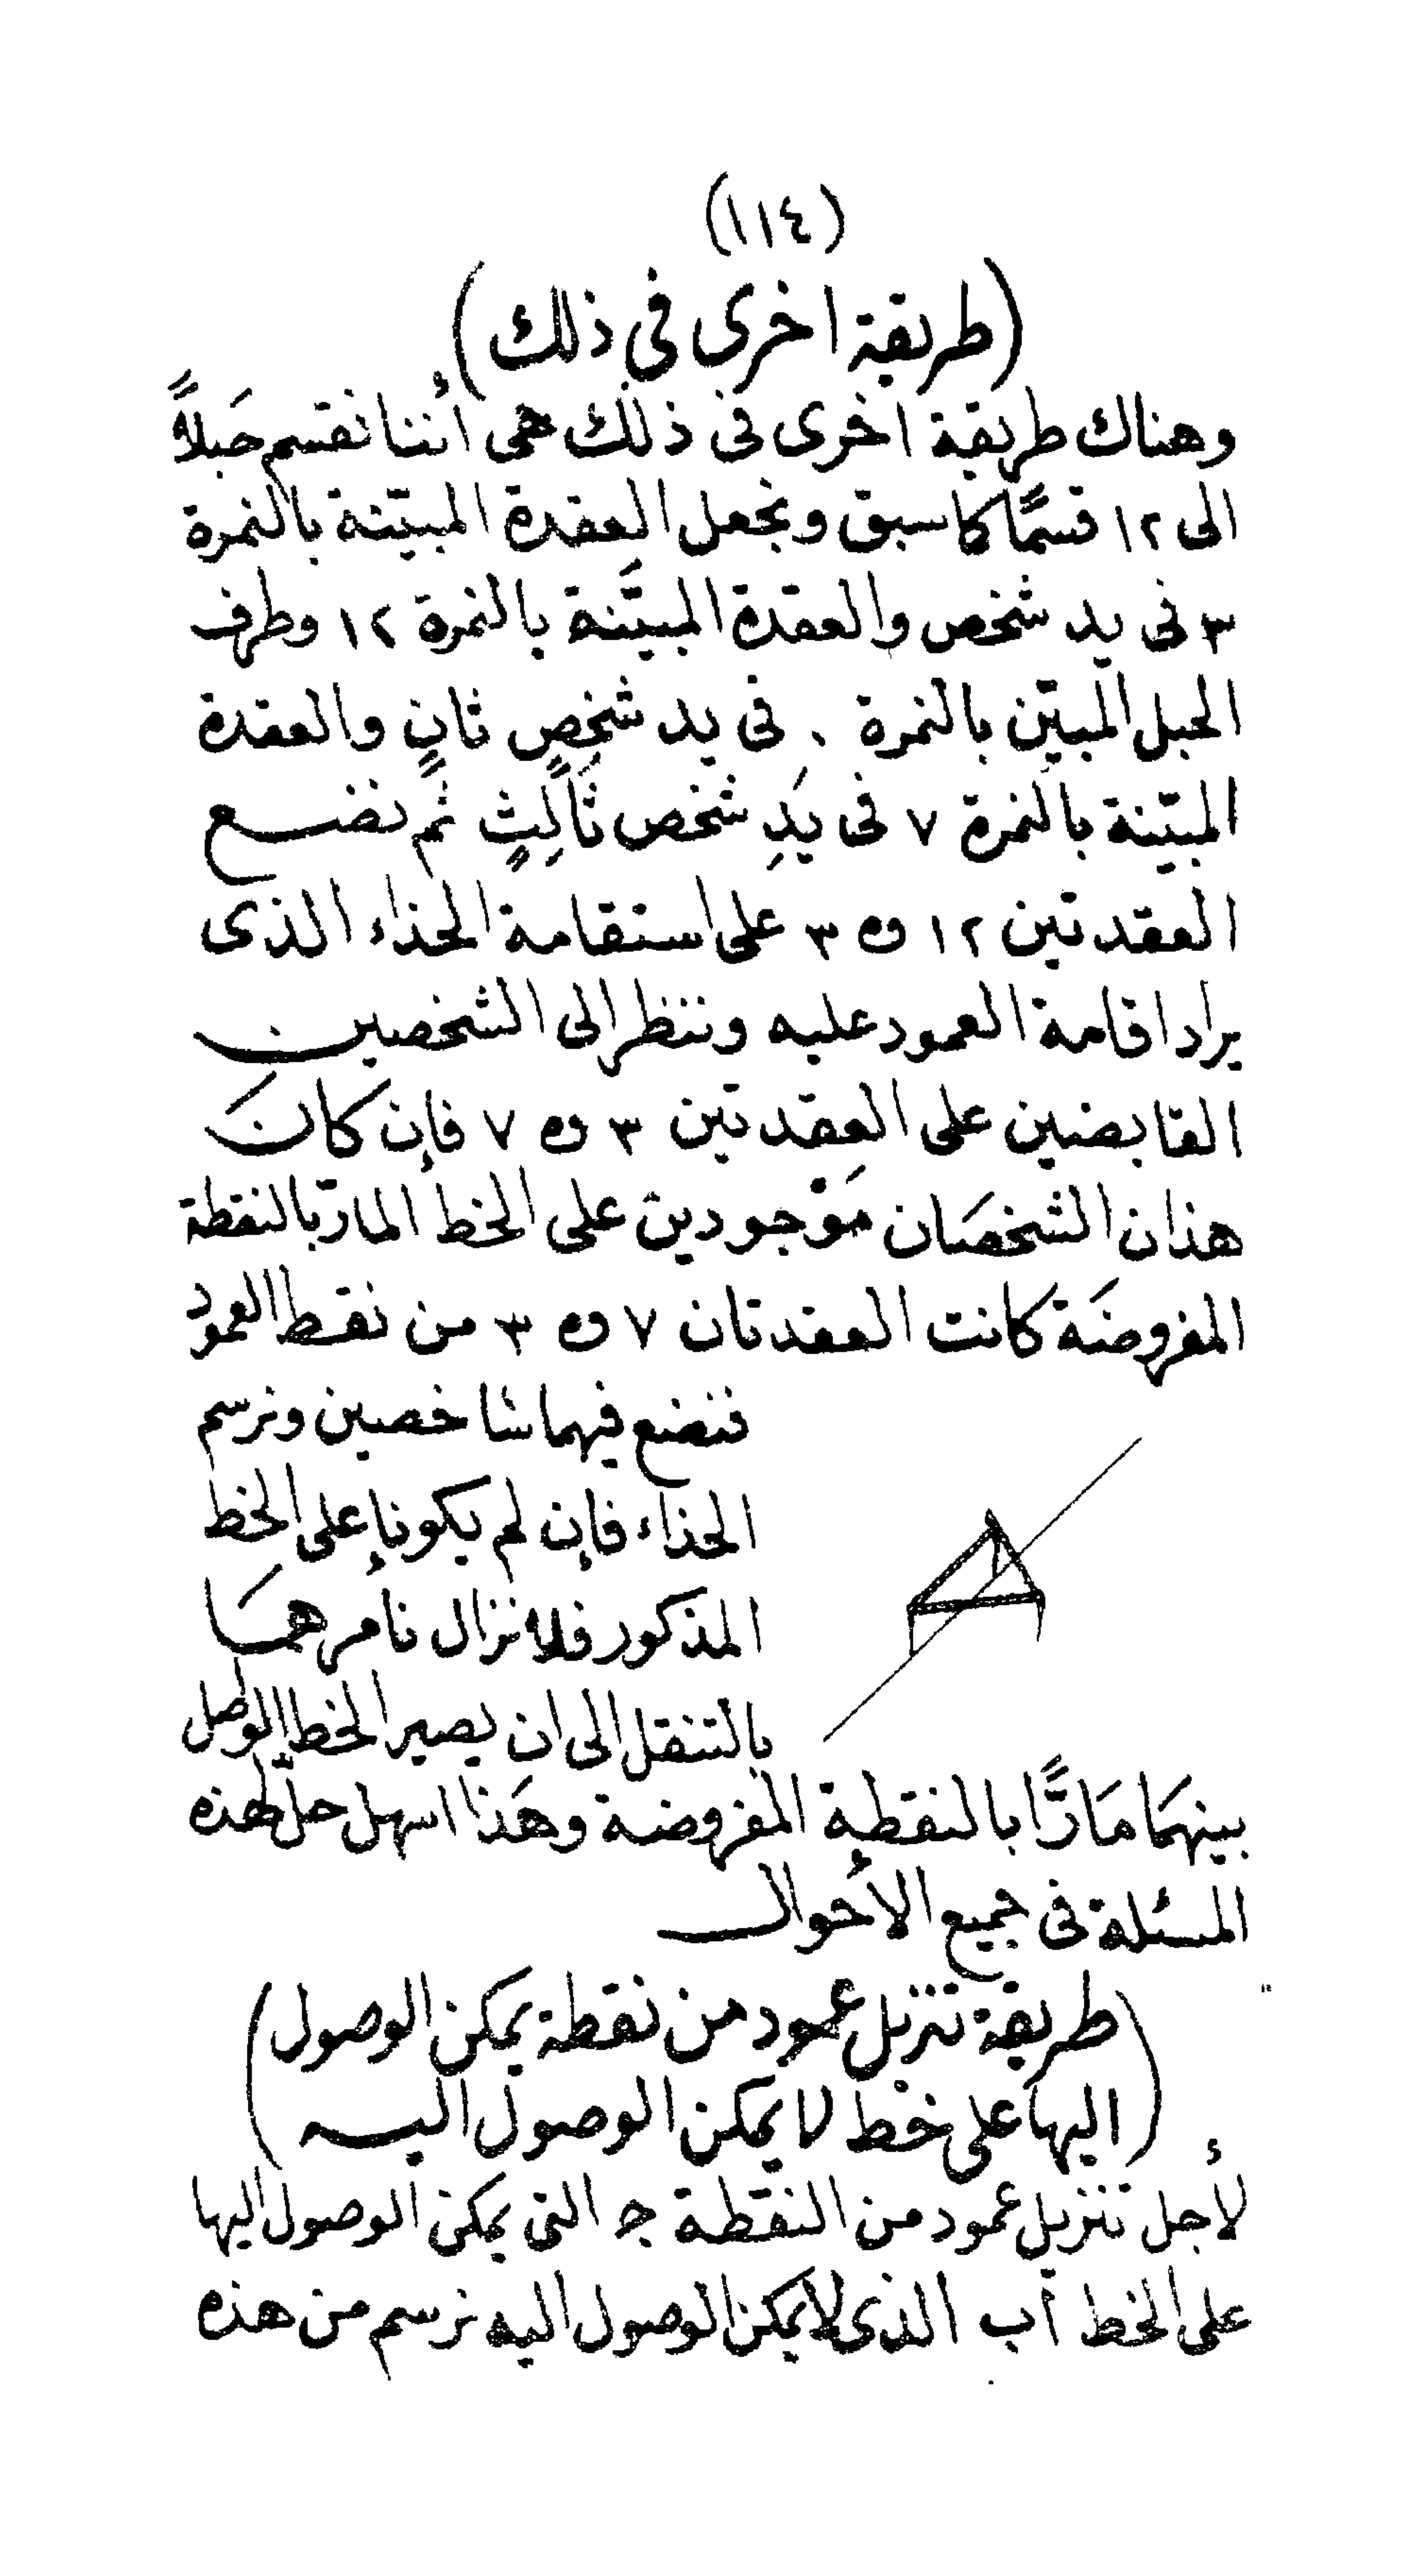 (١١٤)
(طريقة اخرى فى ذلك)
وهناك طريقة اخرى فى ذلك هى أننا نقسم حَبلاً
الى ١٢ قسمًا كما سبق ونجعل العقدة المبيّنة بالنمرة
٣ فى يد شخص والعقدة المبيَّنة بالنمرة ١٢ وطرف
الحبل المبيّن بالنمرة ٠ فى يد شخصٍ ثانٍ والعقدة
المبيّنة بالنمرة ٧ فى يَدِ شخص ثَالِثٍ ثم نضع
العقدتين ١٢ و ٣ على استقامة الحذاء الذى
يراد اقامة العمود عليه وننظر الى الشخصين
القابضين على العقدتين ٣ و ٧ فإن كانَ
هذان الشخصَان مَوْجودين على الخط المارّ بالنقطة
المفروضَة كانت العقدتان ٧ و ٣ من نقط العمود
فنضع فيهما شاخصين ونرسم
الحذاء فإن لم يكونا على الخط
المذكور فلا نزال نأمرهمَا
بالتنقل الى ان يصير الخط الواصل
بينهمَا مَارًّا بالنقطة المفروضة وهَذا اسهل حلّ لهذه
المسئلة فى جميع الأحوال
(طريقة تنزيل عمود من نقطة يمكن الوصول
اليها على خط لا يمكن الوصول اليه)
لأجل تنزيل عمود من النقطة جـ التى يمكن الوصول اليها
على الخط اب الذى لا يمكن الوصول اليه نرسم من هذه